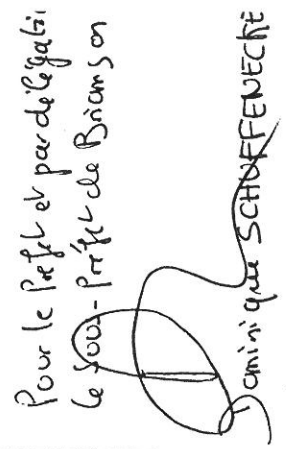 Pour le Préfet et par délégati
le Sous-Préfet de Briançon
Dominique SCHUFFENECKE